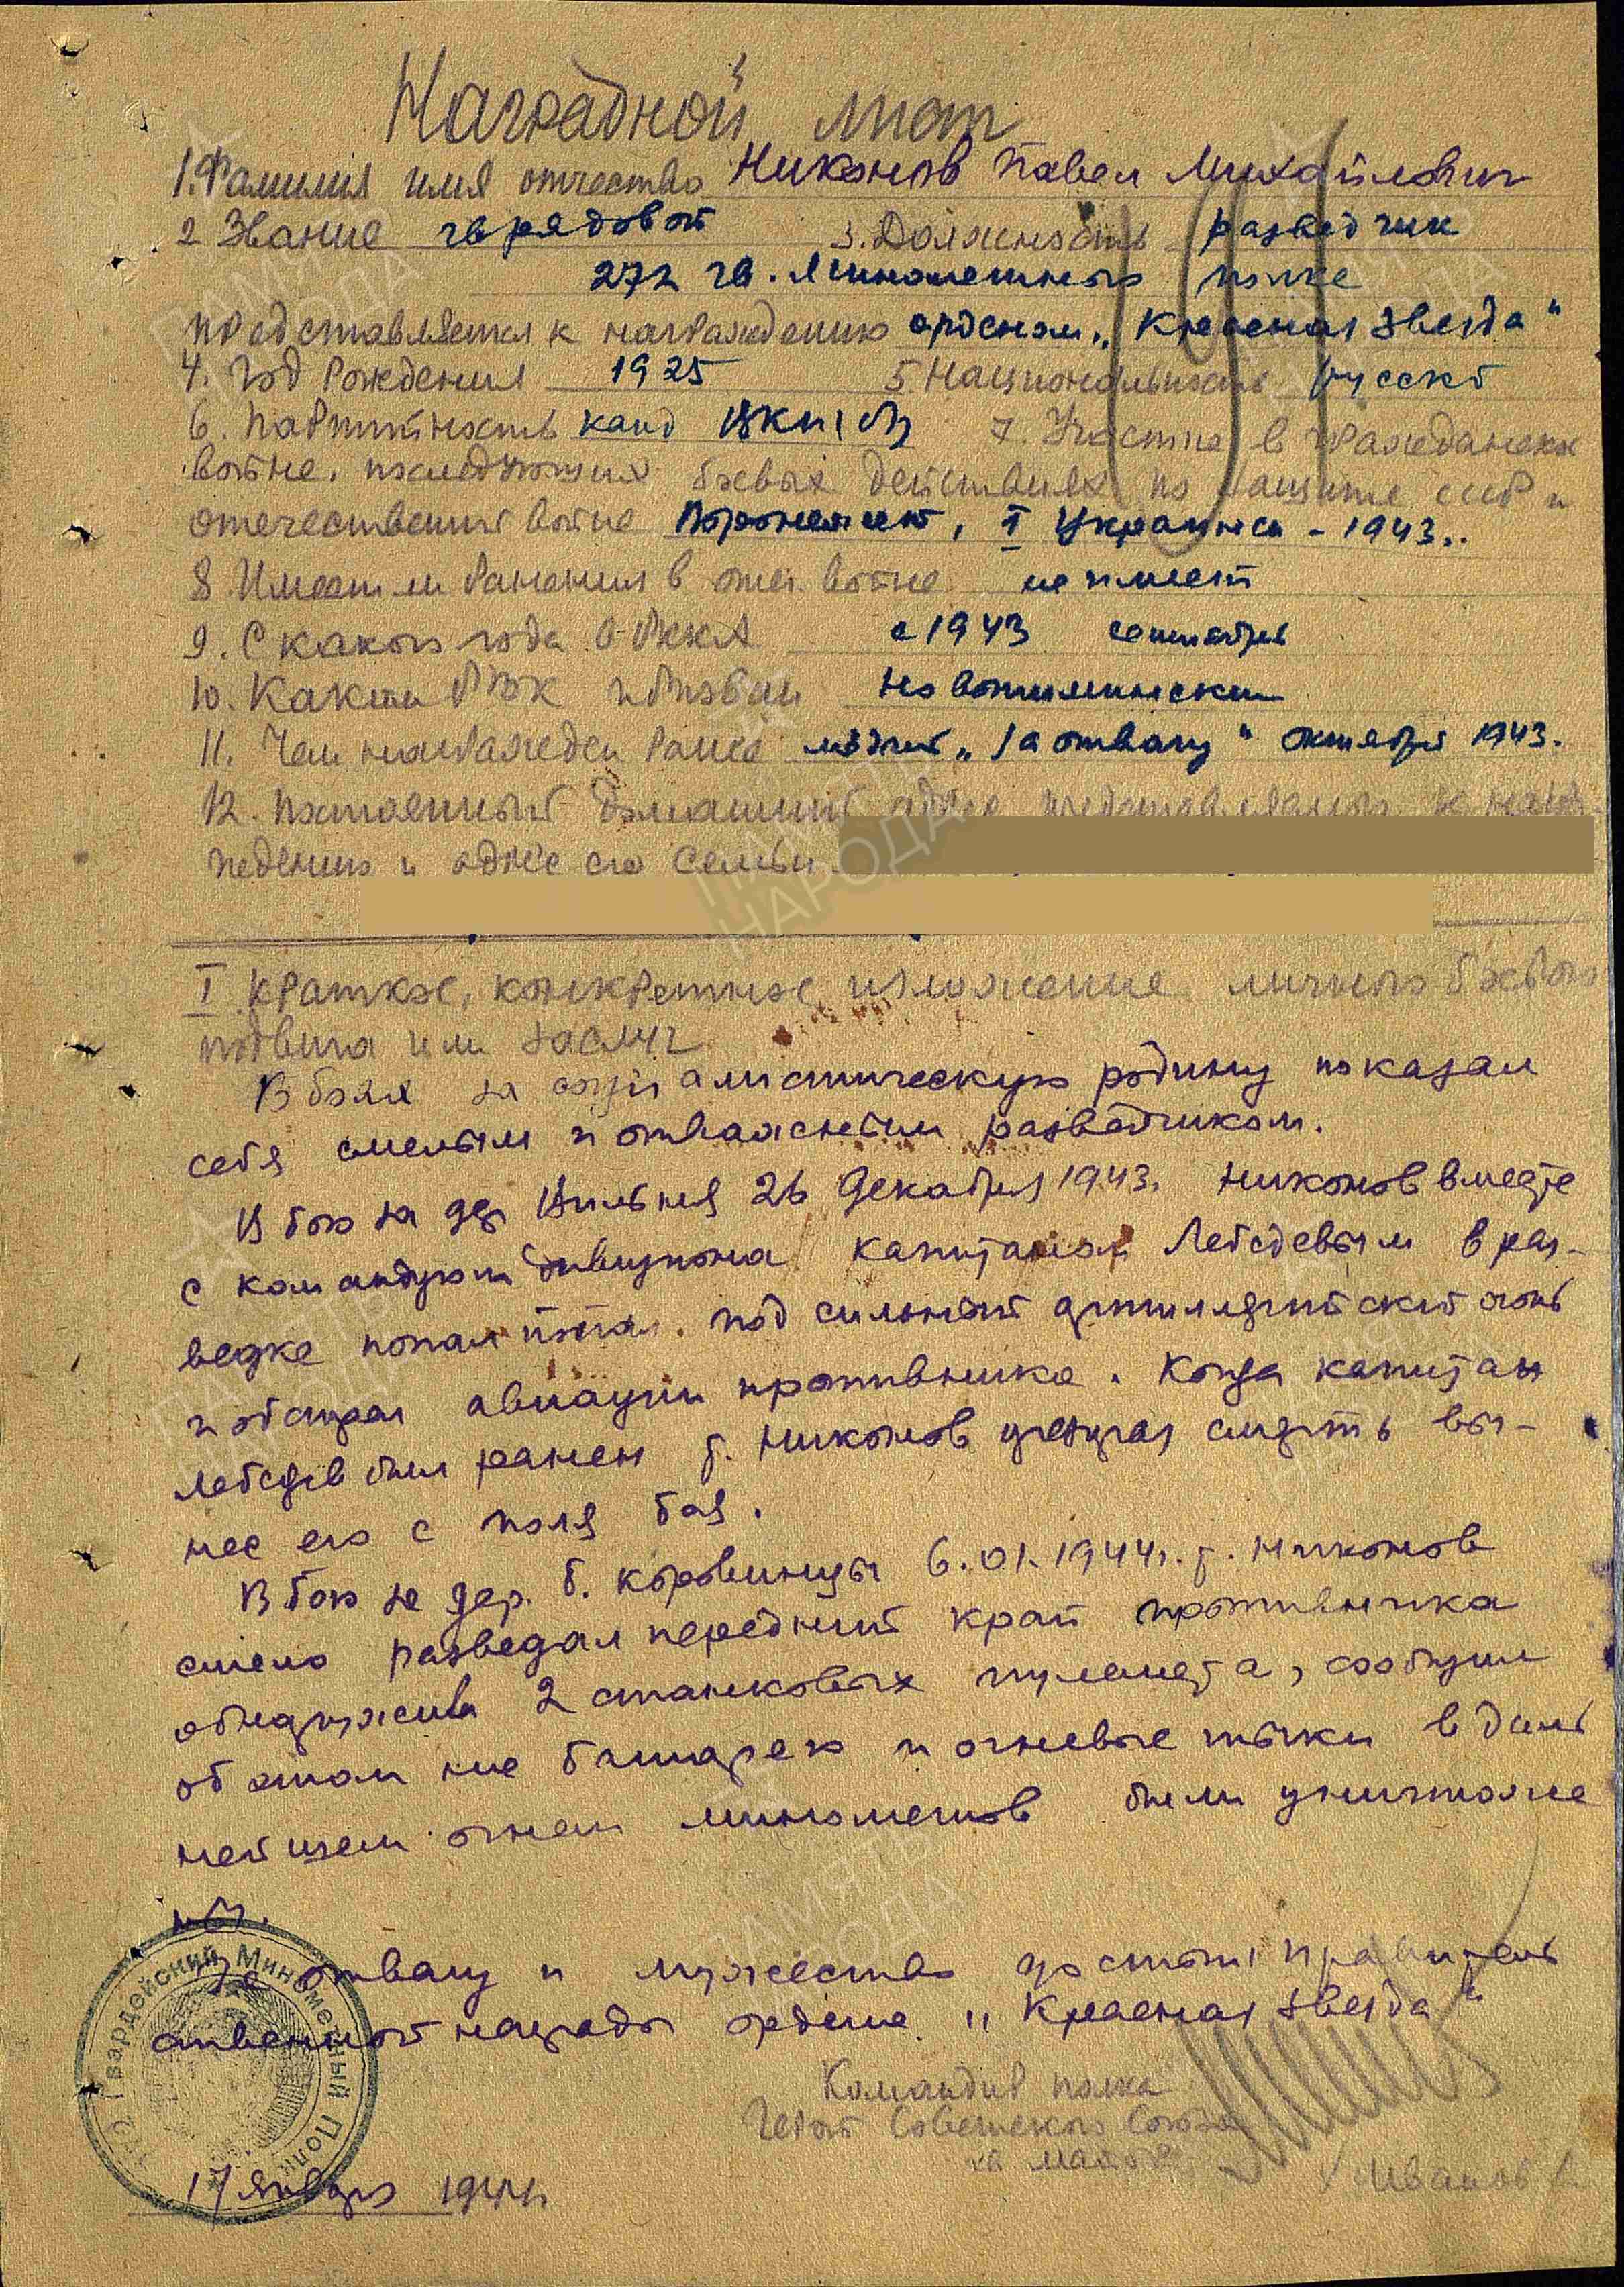 Наградной лист
1. Фамилия имя отчество Никонов Павел Михайлович
2 Звание гв рядовой 3. Должность разведчик
272 гв. Минометного полка
представляется к награждению орденом „Красная звезда"
4. Год рождения 1925 5. Национальность русский
6. Партийность канд ВКП(б) 7. Участие в гражданской
войне, последующих боевых действиях по защите СССР и
отечественной войне Воронежский, I Украинск - 1943..
8 Имеет ли ранения в отеч. войне не имеет
9. С какого года в РККА с 1943 сентября
10. Каким РВК призван
11. Чем награжден ранее медалью „За отвагу" октября 1943.
12. Постоянный домашний адрес представляемого к наг
ждению и адрес его семьи
I Краткое, конкретное изложение личного боевого
подвига или заслуг
В боях за социалистическую родину показал
себя смелым и отважным разведчиком.
В бою за др 26 декабря 1943. Никонов вместе
с командующим дивизиона капитаном Лебедевым в раз-
ведке попал под сильный артиллерийский огонь
и обстрел авиации противника. Когда капитан
Лебедев был ранен т. Никонов презирая смерть вы-
нес его с поля боя.
В бою за дер. Б. Коровинцы 6.01.1944г. т. Никонов
смело разведал передний край противника
обнаружив 2 станковых пулемета, сообщил
об этом на батарею и огневые точки
огнем минометов были уничтоже
ны.
За отвагу и мужество достоин правитель
ственной награды ордена „Красная звезда"
Командир полка
Герой Советского Союза
гв майор
Иванов
17 января 1944г
Гвардейский Минометный Полк
ПАМЯТЬ
НАРОДА